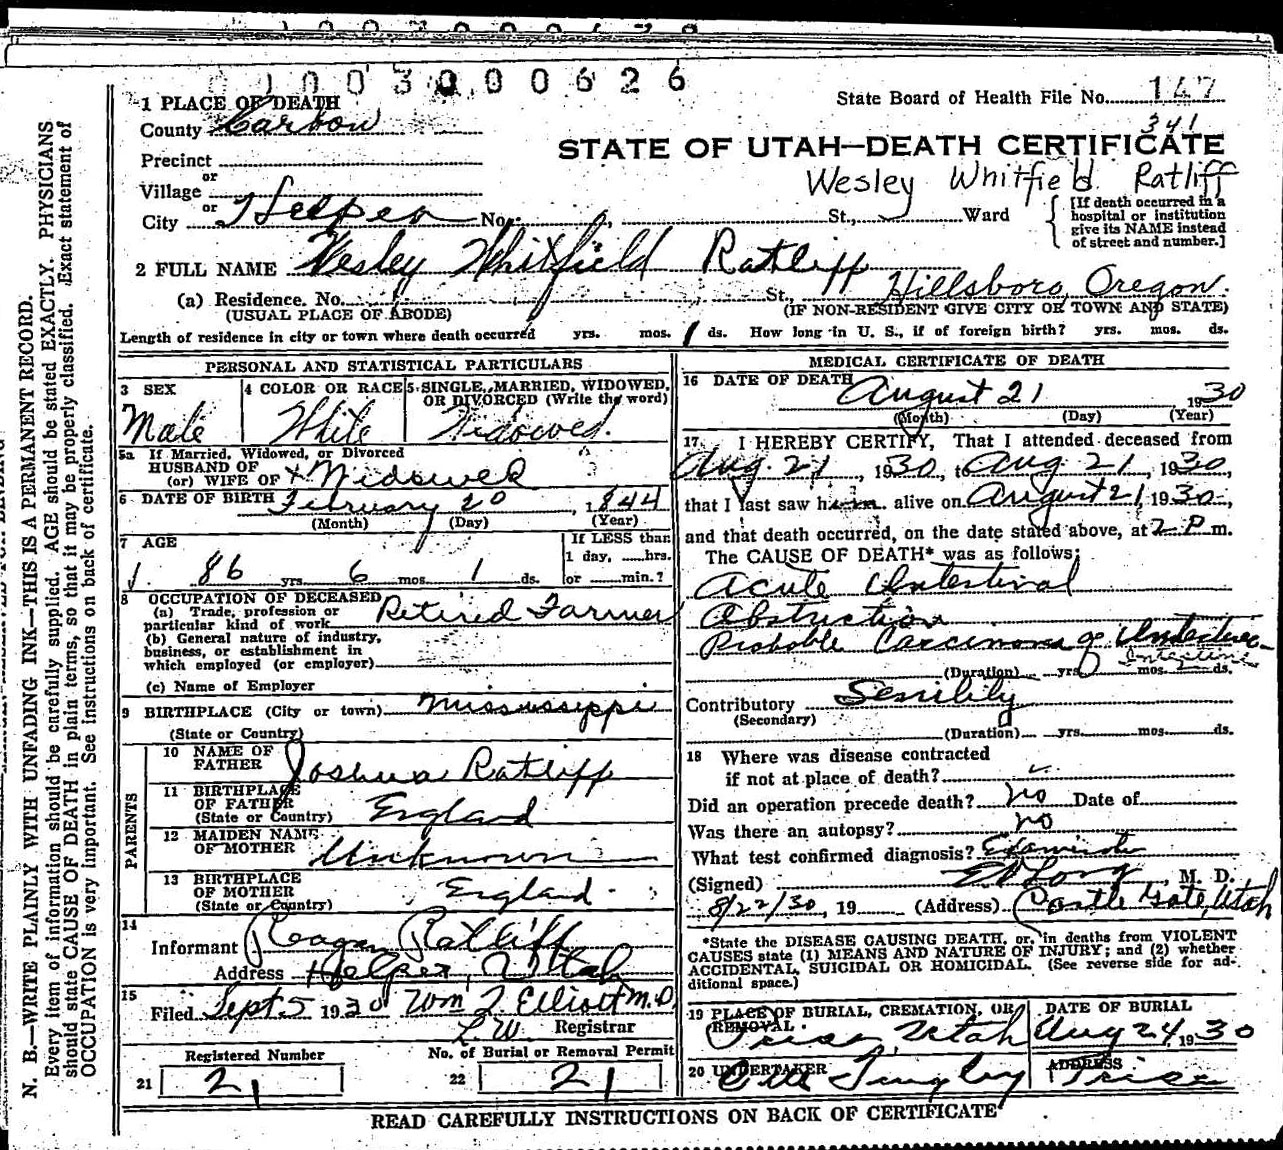 0 1 0 0 3 0 0 0 6 2 6
1 PLACE OF DEATH
State Board of Health File No. 147
County Carbon
341
STATE OF UTAH—DEATH CERTIFICATE
Precinct
or
Wesley Whitfield Ratliff
Village
or
City Helper No. St., Ward
[If death occurred in a
hospital or institution
give its NAME instead
of street and number.]
2 FULL NAME Wesley Whitfield Ratliff
(a) Residence. No. St., Hillsboro, Oregon.
(USUAL PLACE OF ABODE) (IF NON-RESIDENT GIVE CITY OR TOWN AND STATE)
Length of residence in city or town where death occurred yrs. mos. 1 ds. How long in U. S., if of foreign birth? yrs. mos. ds.
PERSONAL AND STATISTICAL PARTICULARS
3 SEX
Male
4 COLOR OR RACE
White
5 SINGLE, MARRIED, WIDOWED,
OR DIVORCED (Write the word)
Widowed.
5a If Married, Widowed, or Divorced
HUSBAND OF
(or) WIFE OF Widower
6 DATE OF BIRTH February 20, 1844
(Month) (Day) (Year)
7 AGE
If LESS than
1 day, ......hrs.
86 yrs. 6 mos. 1 ds. or ......min.?
8 OCCUPATION OF DECEASED
(a) Trade, profession or
particular kind of work Retired Farmer
(b) General nature of industry,
business, or establishment in
which employed (or employer)
(c) Name of Employer
9 BIRTHPLACE (City or town) Mississippi
(State or Country)
PARENTS
10 NAME OF
FATHER Joshua Ratliff
11 BIRTHPLACE
OF FATHER
(State or Country) England
12 MAIDEN NAME
OF MOTHER Unknown
13 BIRTHPLACE
OF MOTHER
(State or Country) England
14
Informant Reagan Ratliff
Address Helper, Utah
15
Filed Sept. 5 1930 Wm. Elliott M.D.
L.W. Registrar
Registered Number
21 21
No. of Burial or Removal Permit
22 21
MEDICAL CERTIFICATE OF DEATH
16 DATE OF DEATH August 21 1930
(Month) (Day) (Year)
17. I HEREBY CERTIFY, That I attended deceased from
Aug. 21, 1930, to Aug 21, 1930,
that I last saw him alive on August 21, 1930,
and that death occurred, on the date stated above, at 2 P.m.
The CAUSE OF DEATH* was as follows:
Acute Intestinal
Obstruction
Probable Carcinoma of
Intestine
(Duration) yrs. mos. ds.
Contributory Senility
(Secondary)
(Duration) yrs. mos. ds.
18 Where was disease contracted
if not at place of death?
Did an operation precede death? no Date of
Was there an autopsy? no
What test confirmed diagnosis?
(Signed) Long, M. D.
8/22/30, 19 (Address) Castle Gate, Utah
*State the DISEASE CAUSING DEATH, or, in deaths from VIOLENT
CAUSES state (1) MEANS AND NATURE OF INJURY; and (2) whether
ACCIDENTAL, SUICIDAL OR HOMICIDAL. (See reverse side for ad-
ditional space.)
19 PLACE OF BURIAL, CREMATION, OR
REMOVAL
Price, Utah
DATE OF BURIAL
Aug 24, 1930
20 UNDERTAKER
ADDRESS
Price
READ CAREFULLY INSTRUCTIONS ON BACK OF CERTIFICATE
N. B.—WRITE PLAINLY WITH UNFADING INK—THIS IS A PERMANENT RECORD.
Every item of information should be carefully supplied. AGE should be stated EXACTLY. PHYSICIANS
should state CAUSE OF DEATH in plain terms, so that it may be properly classified. Exact statement of
OCCUPATION is very important. See instructions on back of certificate.